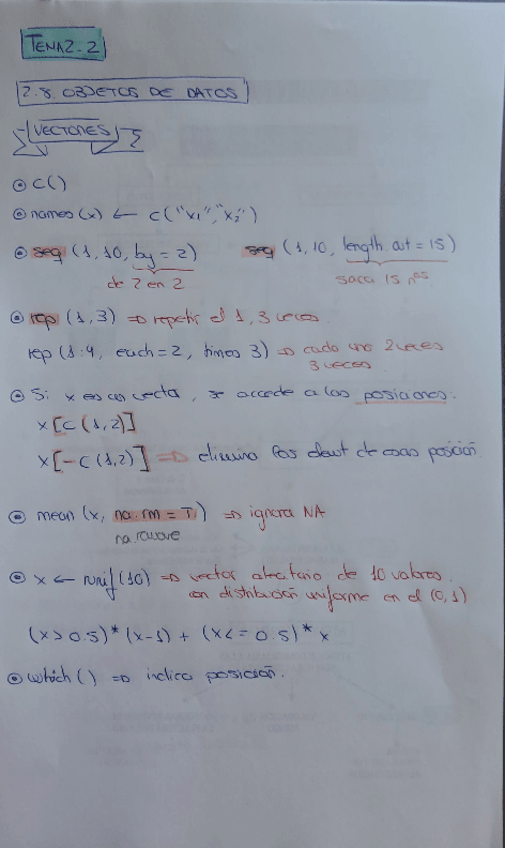 TEMA 2.2
2.8. OBJETOS DE DATOS
VECTORES
c()
names(x) ← c("x1","x2")
seq (1,10, by = 2) seq (1,10, length.out = 15)
de 2 en 2 saca 15 nos
rep (1,3) ⇒ repetir el 1, 3 veces
rep (1:4, each=2, times 3) ⇒ cada uno 2 veces
3 veces
Si x es un vector, se accede a las posiciones:
x[c(1,2)]
x[-c(1,2)] ⇒ elimino los elemt de esas posición.
mean (x, na.rm = T) ⇒ ignora NA
na.remove
x ← runif(10) ⇒ vector aleatorio de 10 valores.
con distribución uniforme en el (0,1)
(x>0.5)*(x-1) + (x<=0.5)*x
which() ⇒ indica posición.